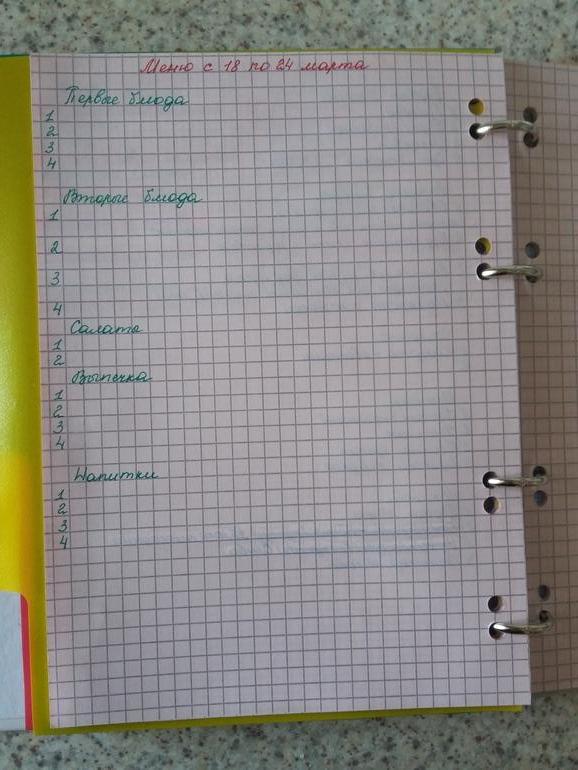 Меню с 18 по 24 марта
Первые блюда
1
2
3
4
Вторые блюда
1
2
3
4
Салаты
1
2
Выпечка
1
2
3
4
Напитки
1
2
3
4